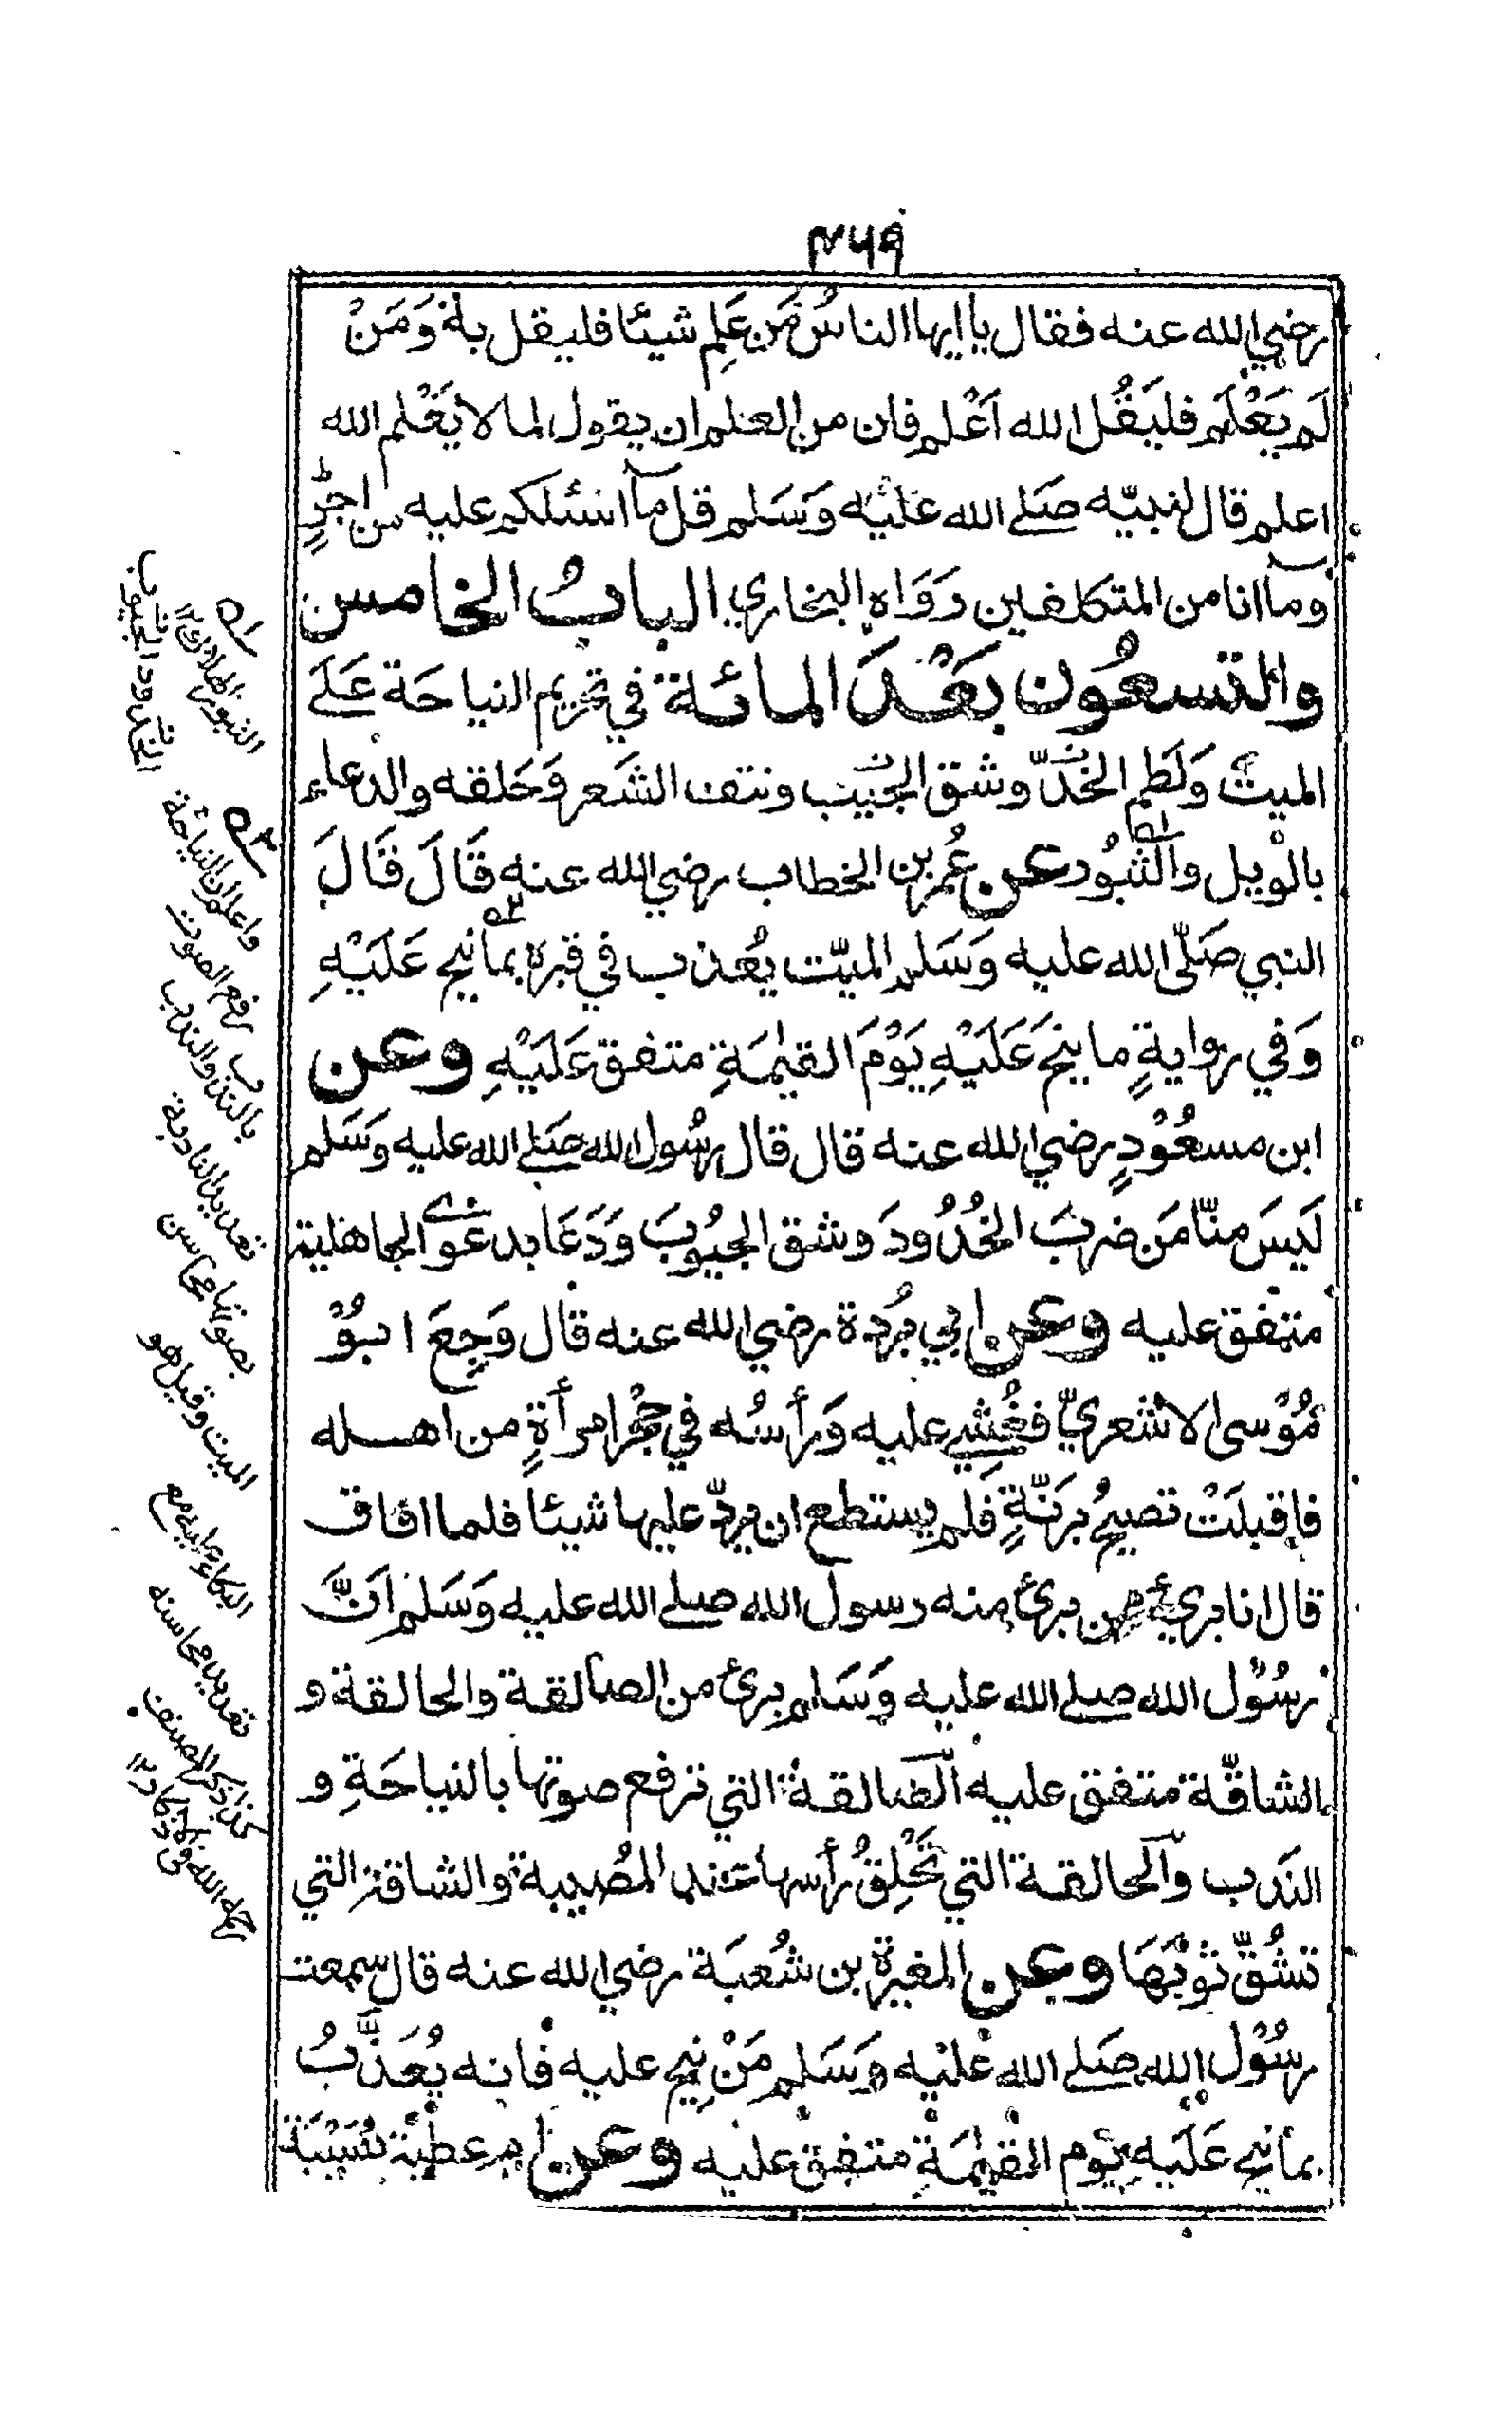 ٣٦٩
رضي الله عنه فقال يا ايها الناسُ مَن عَلِم شيئا فليقل به وَمَنْ
لَم يَعْلَم فليَقُل الله اَعْلم فان من العلم ان يقول لما لا يَعْلم الله
اعلم قال لنبيّه صَلے الله عليْه وَسَلم قل مآ اسئلكم عليه من اجرٍ
ومآ انا من المتكلفين رَوَاه البخاري البابُ الخامس
والتسعُون بَعْدَ المائة في تحريم النياحَة عَلَے
الميت وَلَطم الخدّ وشق الجيب ونتف الشَعر وَحَلقه والدعاء
بالْويل والثبُور عن عُمر بن الخطاب رضي الله عنه قَالَ قَالَ
النبي صَلّى الله عليه وَسَلم الميّت يُعذب في قبره بما نيح عَلَيْهِ
وَفي روايةٍ ما نيحَ عَلَيْهِ يَوْمَ القيٰمَةِ متفق عَلَيْهِ وعن
ابن مسعُوْدٍ رضي الله عنه قال قال رسُول الله صَلے الله عليه وَسَلم
لَيسَ منّا مَن ضربَ الخُدُودَ وشق الجيُوبَ وَدَعَا بدعْوَے الجاهلية
متفق عليه وعن ابي بُرْدة رضي الله عنه قال وَجِعَ ابُوْ
مُوْسى الاشعريّ فغُشِي عليه وَرأسُه في حجْر امرأةٍ من اهله
فاقبلَتْ تصيحُ برَنّةٍ فلم يستطع ان يردّ عليها شيئا فلما افاق
قال انا بريء ممن برئ منه رسول الله صلے الله عليه وَسَلم اَنَّ
رسُوْل الله صلے الله عليه وَسَلم برئ من الصالقة والحالقة و
الشاقّة متفق عليه الصَالقة التي ترفع صوتها بالنياحَةِ و
الندب والحالقة التي تَحْلِقُ رأسها عند المصُيبة والشاقة التي
تشُقّ ثوْبَهَا وعن المغيرة بن شُعبَة رضي الله عنه قال سمعت
رسُوْل الله صَلے الله عليْه وَسَلم مَنْ نِيح عليه فانه يُعَذَّبُ
بما نيح عَلَيه يَوْم القيٰمَةِ متفق عليه وعن ام عطية نُسَيْبَة
ه١
الثبور الهلاك ١٢
ه٢
واعلم ان النياحة
رفع الصوت
بالندب والندب
تعديد النادبة
بصوتها محاسن
الميت وقيل هو
البكاء عليه مع
تعديد محاسنه
كذا ذكر المصنف
رحمه الله في